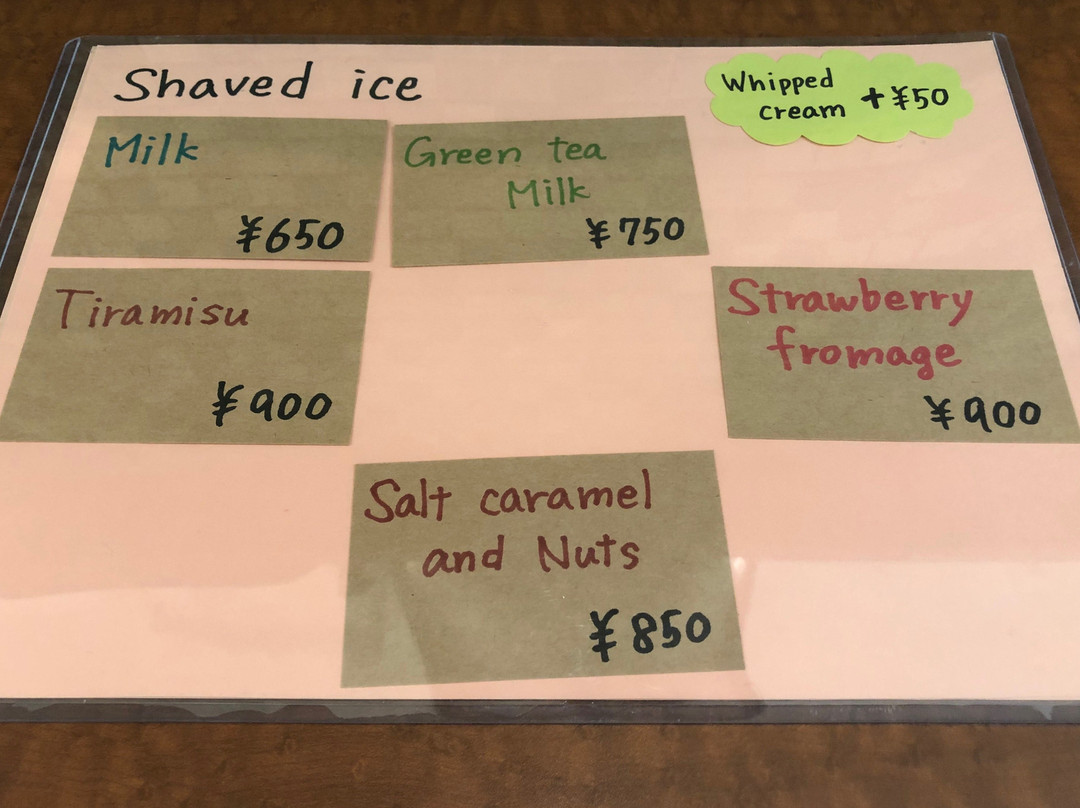 Shaved ice
Whipped
cream +¥50
Milk
¥650
Green tea
Milk
¥750
Tiramisu
¥900
Strawberry
fromage
¥900
Salt caramel
and Nuts
¥850